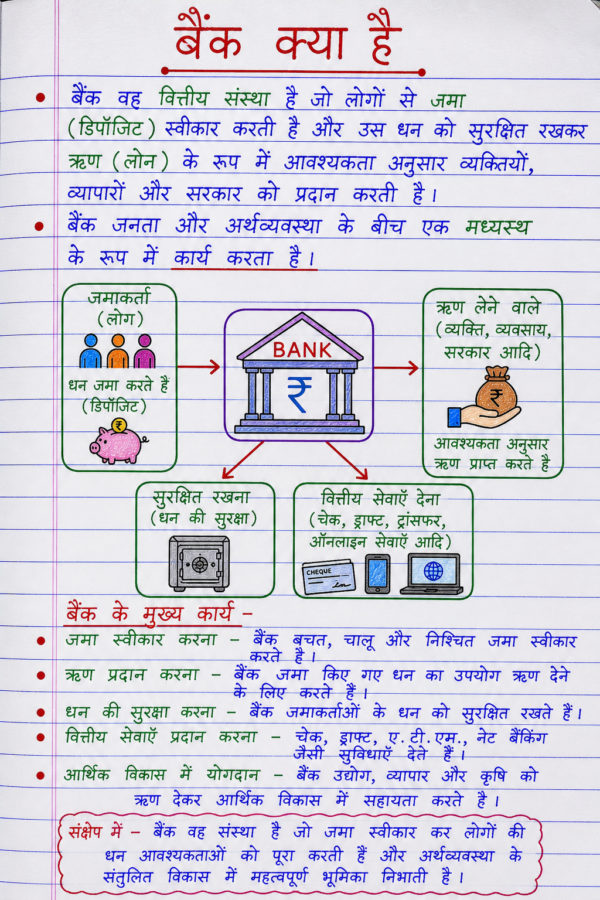 बैंक क्या है
• बैंक वह वित्तीय संस्था है जो लोगों से जमा
(डिपॉजिट) स्वीकार करती है और उस धन को सुरक्षित रखकर
ऋण (लोन) के रूप में आवश्यकता अनुसार व्यक्तियों,
व्यापारों और सरकार को प्रदान करती है।
• बैंक जनता और अर्थव्यवस्था के बीच एक मध्यस्थ
के रूप में कार्य करता है।
जमाकर्ता
(लोग)
धन जमा करते हैं
(डिपॉजिट)
₹
BANK
₹
ऋण लेने वाले
(व्यक्ति, व्यवसाय,
सरकार आदि)
₹
आवश्यकता अनुसार
ऋण प्राप्त करते है
सुरक्षित रखना
(धन की सुरक्षा)
वित्तीय सेवाएँ देना
(चेक, ड्राफ्ट, ट्रांसफर,
ऑनलाइन सेवाएँ आदि)
CHEQUE
बैंक के मुख्य कार्य –
• जमा स्वीकार करना – बैंक बचत, चालू और निश्चित जमा स्वीकार
करते है।
• ऋण प्रदान करना – बैंक जमा किए गए धन का उपयोग ऋण देने
के लिए करते हैं।
• धन की सुरक्षा करना – बैंक जमाकर्ताओं के धन को सुरक्षित रखते हैं।
• वित्तीय सेवाएँ प्रदान करना – चेक, ड्राफ्ट, ए.टी.एम., नेट बैंकिंग
जैसी सुविधाएँ देते हैं।
• आर्थिक विकास में योगदान – बैंक उद्योग, व्यापार और कृषि को
ऋण देकर आर्थिक विकास में सहायता करते है।
संक्षेप में – बैंक वह संस्था है जो जमा स्वीकार कर लोगों की
धन आवश्यकताओं को पूरा करती हैं और अर्थव्यवस्था के
संतुलित विकास में महत्वपूर्ण भूमिका निभाती है।